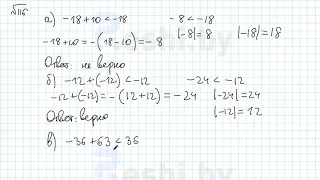 №116
а) -18+10 < -18    -8 < -18
-18+10 = -(18-10) = -8    |-8| = 8    |-18| = 18
Ответ: не верно
б) -12+(-12) < -12    -24 < -12
-12+(-12) = -(12+12) = -24    |-24| = 24
Ответ: верно    |-12| = 12
в) -36+63 < 36
reshi.by